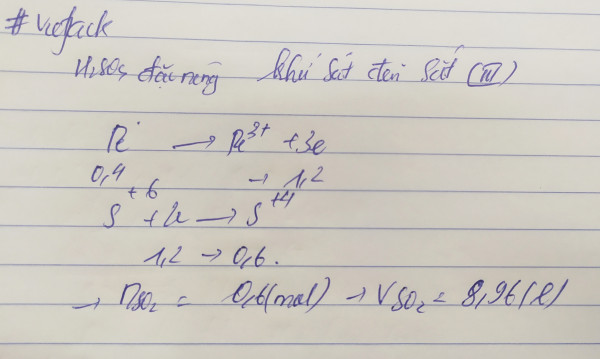 #vietjack
H₂SO₄ đặc nóng khử sắt đến sắt (III)
Fe → Fe³⁺ + 3e
0,4 → 1,2
S⁺⁶ + 2e → S⁺⁴
1,2 → 0,6.
→ nSO₂ = 0,6(mol) → VSO₂ = 8,96(l)